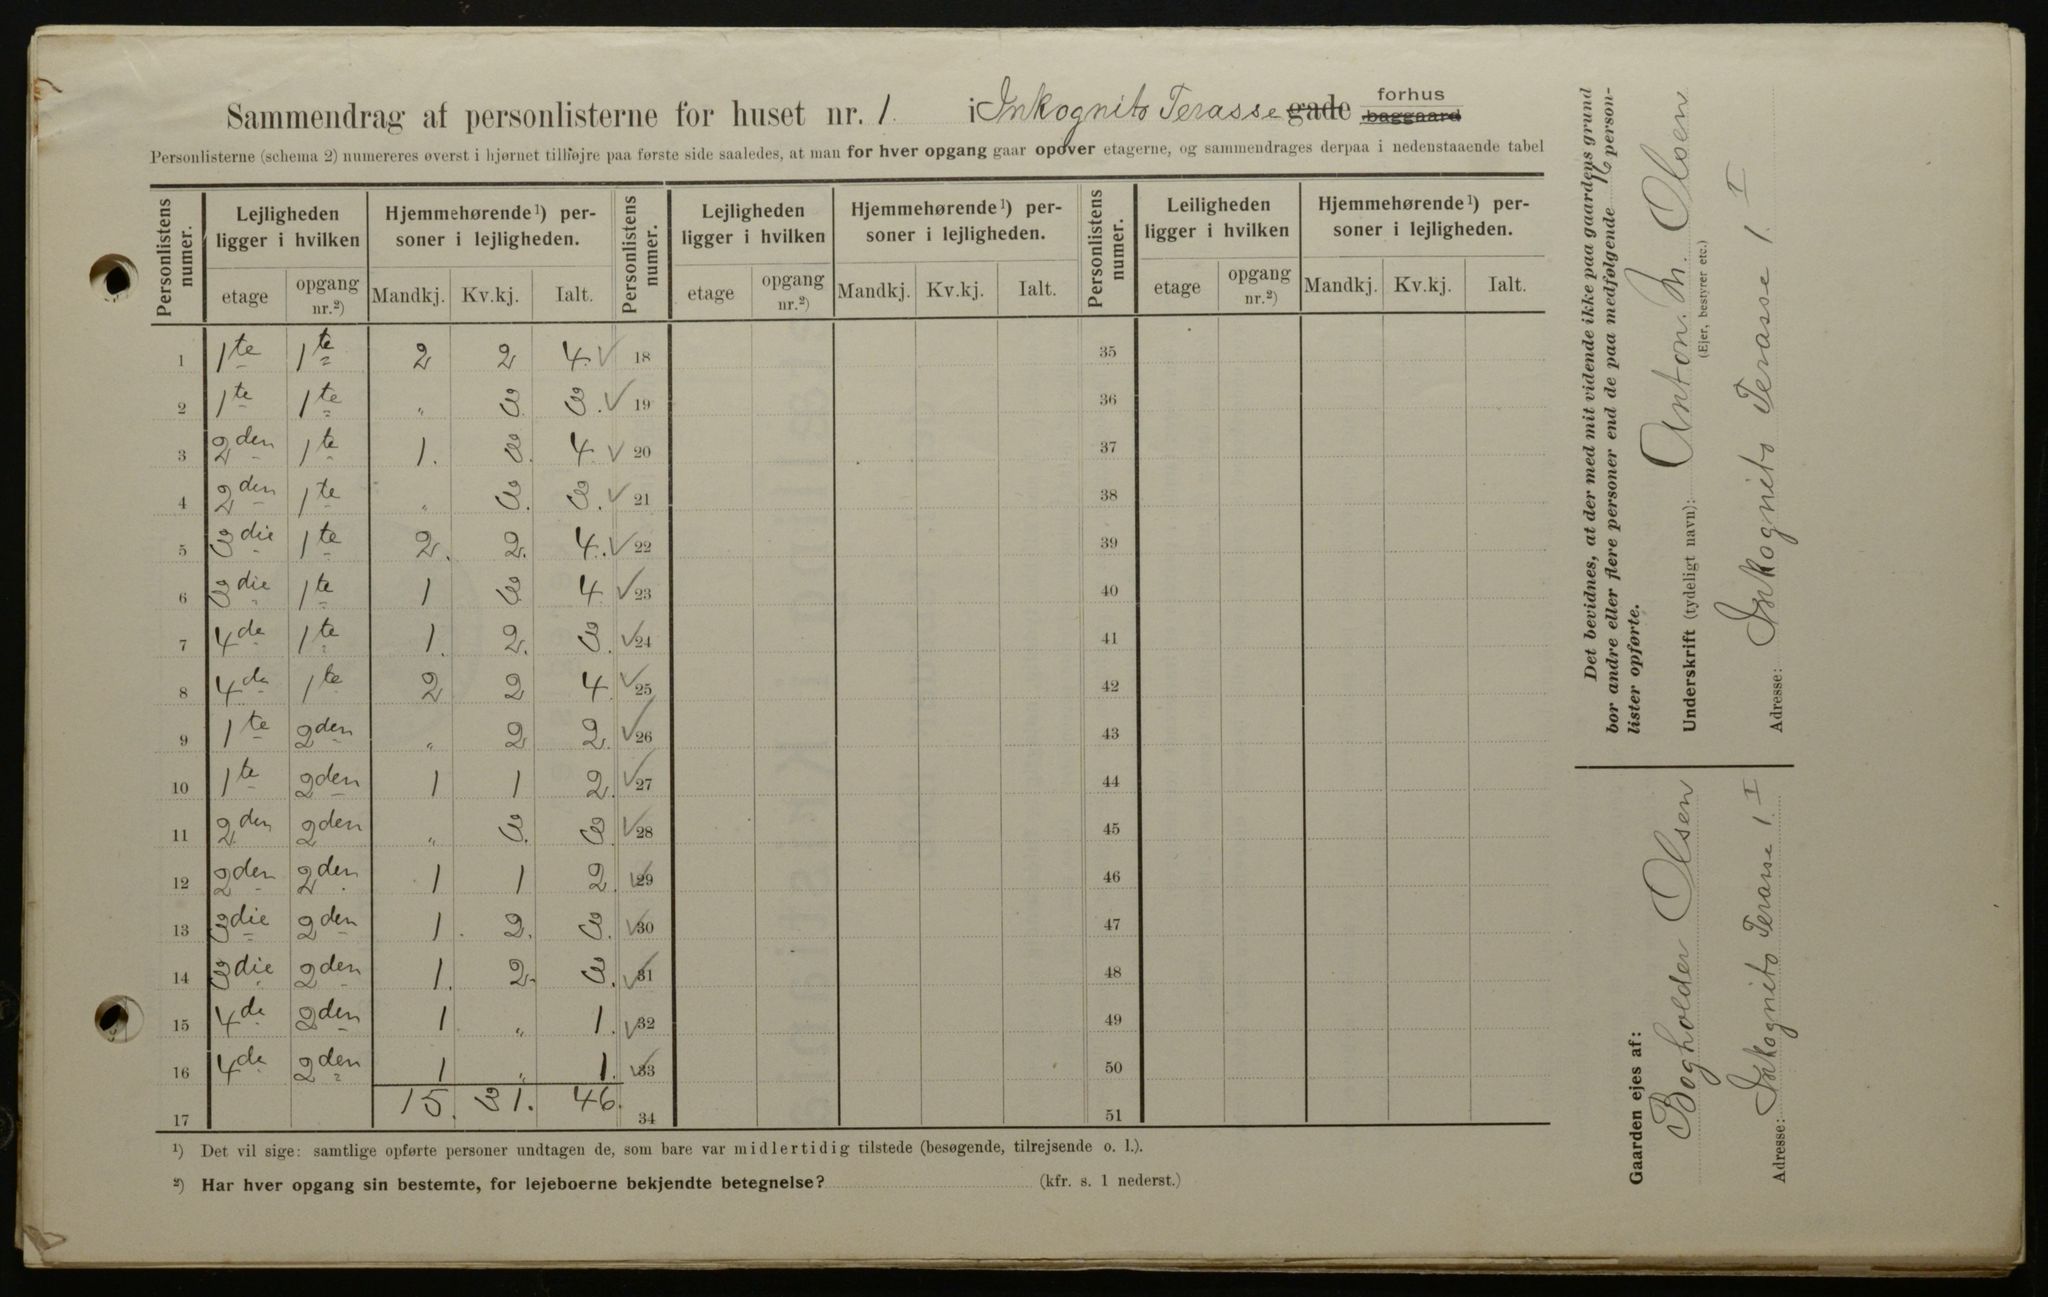 Sammendrag af personlisterne for huset nr. 1. i Inkognito Terasse gade forhus baggaard
Personlisterne (schema 2) numereres øverst i hjørnet tilhøjre paa første side saaledes, at man for hver opgang gaar opover etagerne, og sammendrages derpaa i nedenstaaende tabel
Personlistens numer. | Lejligheden ligger i hvilken | Hjemmehørende¹) personer i lejligheden. | Personlistens numer. | Lejligheden ligger i hvilken | Hjemmehørende¹) personer i lejligheden. | Personlistens numer. | Leiligheden ligger i hvilken | Hjemmehørende¹) personer i lejligheden.
etage | opgang nr.²) | Mandkj. | Kv.kj. | Ialt. | etage | opgang nr.²) | Mandkj. | Kv.kj. | Ialt. | etage | opgang nr.²) | Mandkj. | Kv.kj. | Ialt.
1 | 1te | 1te | 2 | 2 | 4. ✓ | 18 | 35
2 | 1te | 1te | „ | 3. | 3. ✓ | 19 | 36
3 | 2den | 1te | 1. | 3. | 4. ✓ | 20 | 37
4 | 2den | 1te | „ | 3. | 3. ✓ | 21 | 38
5 | 3die | 1te | 2. | 2. | 4. ✓ | 22 | 39
6 | 3die | 1te | 1 | 3. | 4. ✓ | 23 | 40
7 | 4de | 1te | 1. | 2. | 3. ✓ | 24 | 41
8 | 4de | 1te | 2 | 2 | 4. ✓ | 25 | 42
9 | 1te | 2den | „ | 2 | 2. ✓ | 26 | 43
10 | 1te | 2den | 1 | 1 | 2. ✓ | 27 | 44
11 | 2den | 2den | „ | 3. | 3. ✓ | 28 | 45
12 | 2den | 2den | 1 | 1 | 2. ✓ | 29 | 46
13 | 3die | 2den | 1. | 2. | 3. ✓ | 30 | 47
14 | 3die | 2den | 1. | 2. | 3. ✓ | 31 | 48
15 | 4de | 2den | 1. | „ | 1. ✓ | 32 | 49
16 | 4de | 2den | 1 | „ | 1. ✓ | 33 | 50
17 | 15. | 31. | 46. | 34 | 51
¹) Det vil sige: samtlige opførte personer undtagen de, som bare var midlertidig tilstede (besøgende, tilrejsende o. l.).
²) Har hver opgang sin bestemte, for lejeboerne bekjendte betegnelse? (kfr. s. 1 nederst.)
Det bevidnes, at der med mit vidende ikke paa gaardens grund
bor andre eller flere personer end de paa medfølgende 16 person-
lister opførte.
Underskrift (tydeligt navn): Anton. M. Olsen
(Ejer, bestyrer etc.)
Adresse: Inkognito Terasse 1. I
Gaarden ejes af:
Bogholder Olsen
Adresse: Inkognito Terasse 1. I